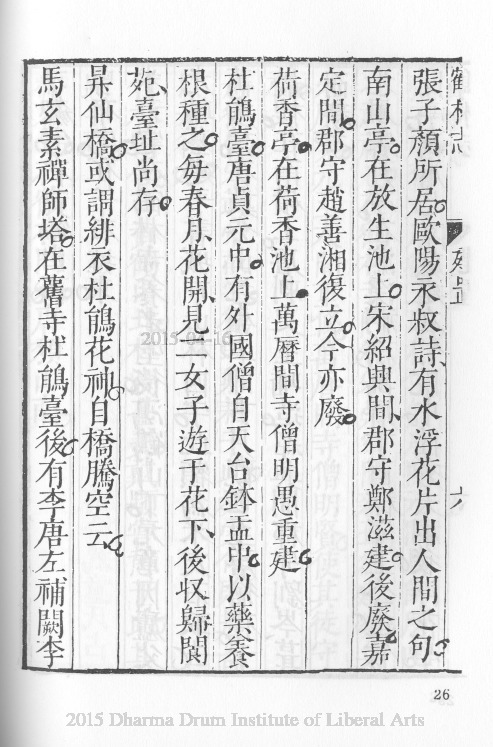 張子顏所居歐陽永叔詩有水浮花片出人間之句
南山亭在放生池上宋紹興間郡守鄭滋建後廢嘉
定間郡守趙善湘復立今亦廢
荷香亭在荷香池上萬曆間寺僧明愚重建
杜鵑臺唐貞元中有外國僧自天台鉢盂中以藥養
根種之每春月花開見一女子遊于花下後収歸閬
苑臺址尚存
昇仙橋或謂緋衣杜鵑花神自橋騰空云
馬玄素禪師塔在舊寺杜鵑臺後有李唐左補闕李
26
2015-04-16
2015 Dharma Drum Institute of Liberal Arts